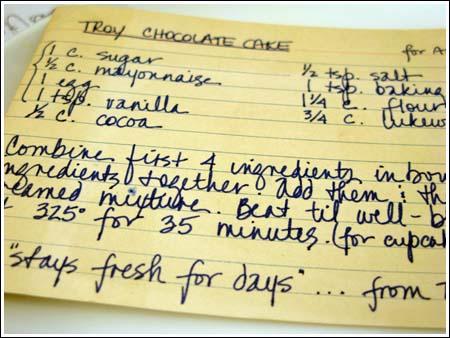 TROY CHOCOLATE CAKE
for
1 c. sugar
½ c. mayonnaise
1 egg
1 tsp. vanilla
½ c. cocoa
½ tsp. salt
1 tsp. baking
1¼ c. flour
3/4 c. lukew
Combine first 4 ingredients in bow
ngredients together. Add them & th
reamed mixture. Beat til well-b
325° for 35 minutes. (for cupca
"stays fresh for days"... from